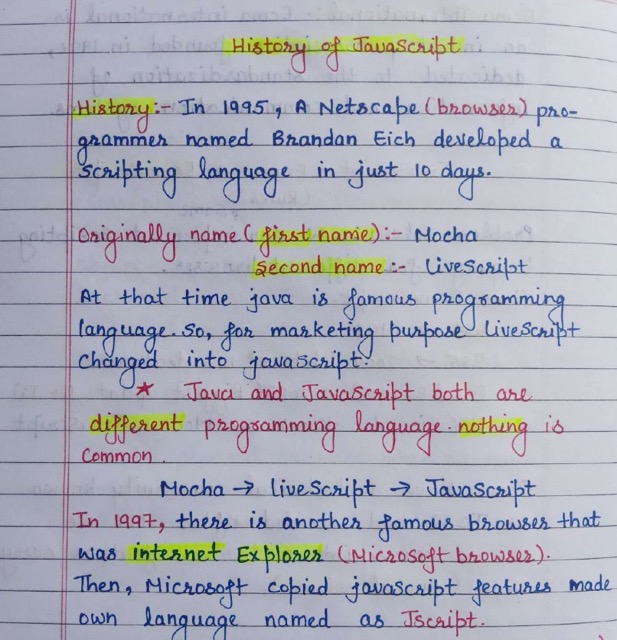 History of JavaScript
History:- In 1995, A Netscape (browser) pro-
grammer named Brandan Eich developed a
scripting language in just 10 days.
Originally name (first name):- Mocha
second name:- LiveScript
At that time java is famous programming
language. So, for marketing purpose LiveScript
changed into javascript.
* Java and JavaScript both are
different programming language. nothing is
common.
Mocha → LiveScript → JavaScript
In 1997, there is another famous browser that
was internet Explorer (Microsoft browser).
Then, Microsoft copied javascript features made
own language named as Jscript.